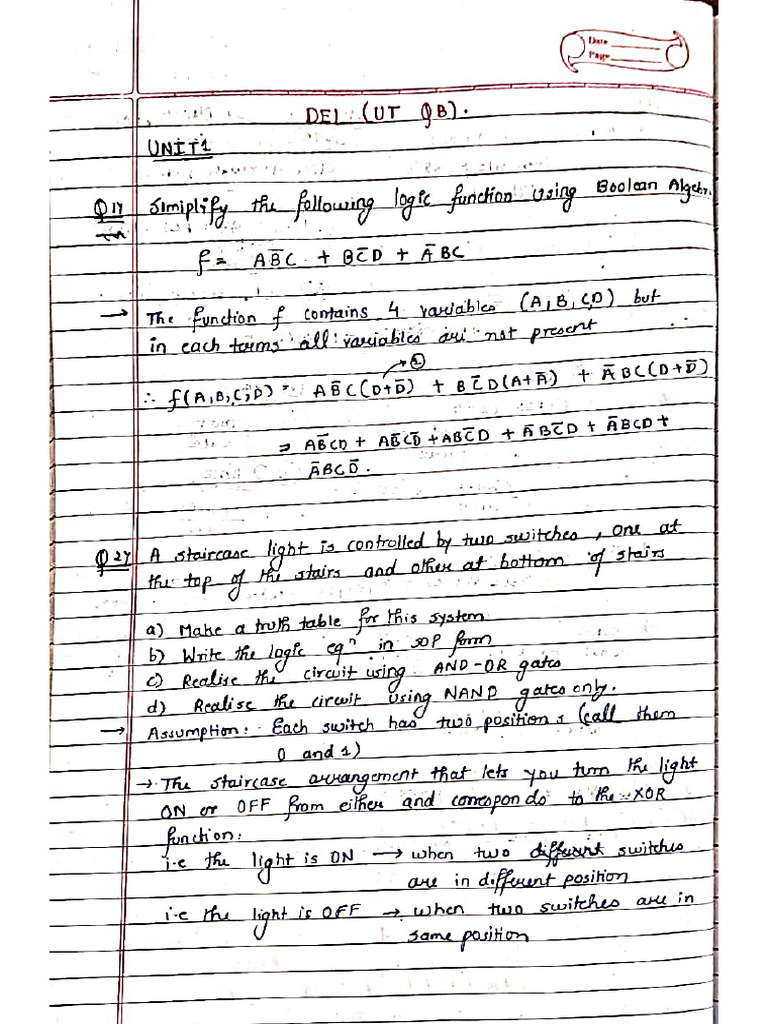 Date
Page
DEL (UT QB).
UNIT 1
Q 1) Simiplify the following logic function using Boolean Algebr.
f = AB̅C + BC̅D + A̅BC
→ The function f contains 4 variables (A, B, C, D) but
in each terms all variables are not present
①
∴ f(A, B, C, D) = AB̅C(D+D̅) + BC̅D(A+A̅) + A̅BC(D+D̅)
= AB̅CD + AB̅CD̅ + ABC̅D + A̅BC̅D + A̅BCD +
A̅BCD̅.
Q 2) A staircase light is controlled by two switches, one at
the top of the stairs and other at bottom of stairs
a) Make a truth table for this system
b) Write the logic eqⁿ in SOP form
c) Realise the circuit using AND-OR gates
d) Realise the circuit using NAND gates only.
→ Assumption: Each switch has two positions (call them
0 and 1)
→ The staircase arrangement that lets you turn the light
ON or OFF from either and corresponds to the XOR
function:
i.e the light is ON → when two different switches
are in different position
i.e the light is OFF → when two switches are in
same position